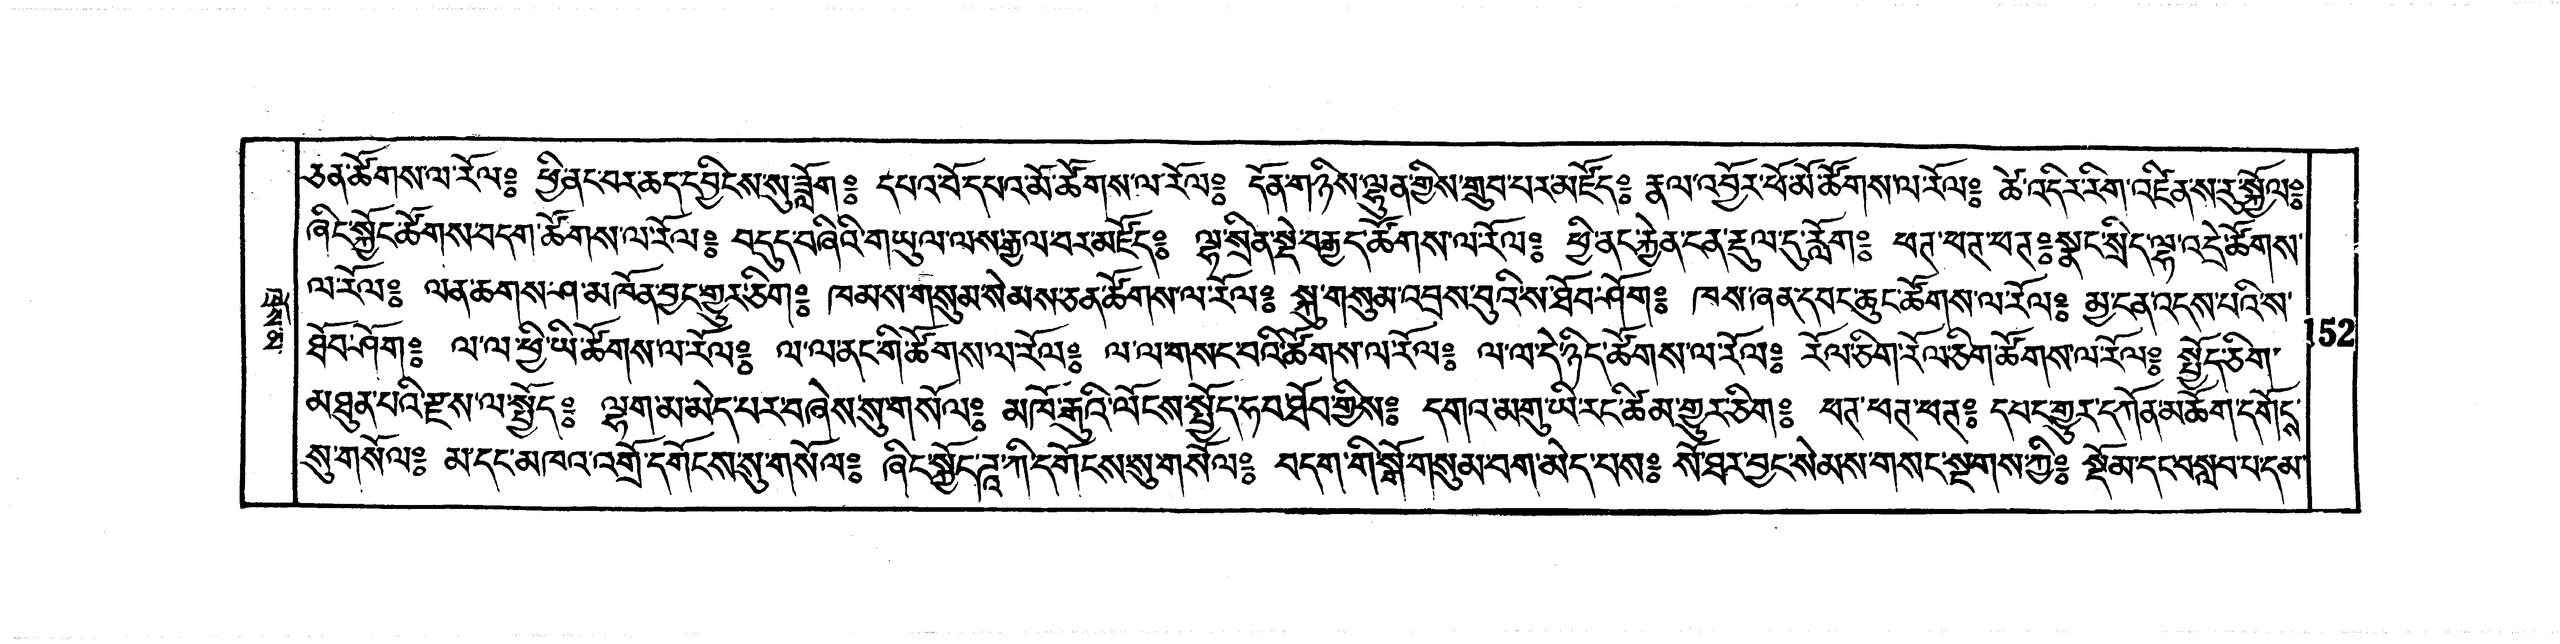 ཅན་ཚོགས་ལ་རོལ༔ ཕྱི་ནང་བར་ཆད་དབྱིངས་སུ་ཟློག༔ དཔའ་བོ་དཔའ་མོ་ཚོགས་ལ་རོལ༔ དོན་གཉིས་ལྷུན་གྱིས་གྲུབ་པར་མཛོད༔ རྣལ་འབྱོར་ཕོ་མོ་ཚོགས་ལ་རོལ༔ ཚེ་འདིར་རིག་འཛིན་སར་སྐྱོལ༔
ཞིང་སྐྱོང་ཚོགས་བདག་ཚོགས་ལ་རོལ༔ བདུད་བཞིའི་གཡུལ་ལས་རྒྱལ་བར་མཛོད༔ ལྷ་སྲིན་སྡེ་བརྒྱད་ཚོགས་ལ་རོལ༔ ཕྱི་ནང་རྐྱེན་ངན་རྡུལ་དུ་རློག༔ ཕཊ་ཕཊ་ཕཊ༔ སྣང་སྲིད་ལྷ་འདྲེ་ཚོགས་
ལ་རོལ༔ ལན་ཆགས་ཤ་མཁོན་བྱང་གྱུར་ཅིག༔ ཁམས་གསུམ་སེམས་ཅན་ཚོགས་ལ་རོལ༔ སྐུ་གསུམ་འབྲས་བུའི་ས་ཐོབ་ཤོག༔ ཁས་ཞན་དབང་ཆུང་ཚོགས་ལ་རོལ༔ མྱ་ངན་འདས་པའི་ས་
ཐོབ་ཤོག༔ ལ་ལ་ཕྱི་ཡི་ཚོགས་ལ་རོལ༔ ལ་ལ་ནང་གི་ཚོགས་ལ་རོལ༔ ལ་ལ་གསང་བའི་ཚོགས་ལ་རོལ༔ ལ་ལ་དེ་ཉིད་ཚོགས་ལ་རོལ༔ རོལ་ཅིག་རོལ་ཅིག་ཚོགས་ལ་རོལ༔ སྤྱོད་ཅིག་
མཐུན་པའི་རྫས་ལ་སྤྱོད༔ ལྷག་མ་མེད་པར་བཞེས་སུ་གསོལ༔ མཁོ་རྒུའི་ལོངས་སྤྱོད་ཧབ་ཐོབ་གྱིས༔ དགའ་མགུ་ཡི་རང་ཚིམ་གྱུར་ཅིག༔ ཕཊ་ཕཊ་ཕཊ༔ དཔང་གྱུར་དཀོན་མཆོག་དགོངས་
སུ་གསོལ༔ མ་དང་མཁའ་འགྲོ་དགོངས་སུ་གསོལ༔ ཞིང་སྐྱོང་ཌཱ་ཀི་དགོངས་སུ་གསོལ༔ བདག་གི་སྒོ་གསུམ་བག་མེད་པས༔ སོ་ཐར་བྱང་སེམས་གསང་སྔགས་ཀྱི༔ སྡོམ་དང་བསླབ་པ་དམ་
152